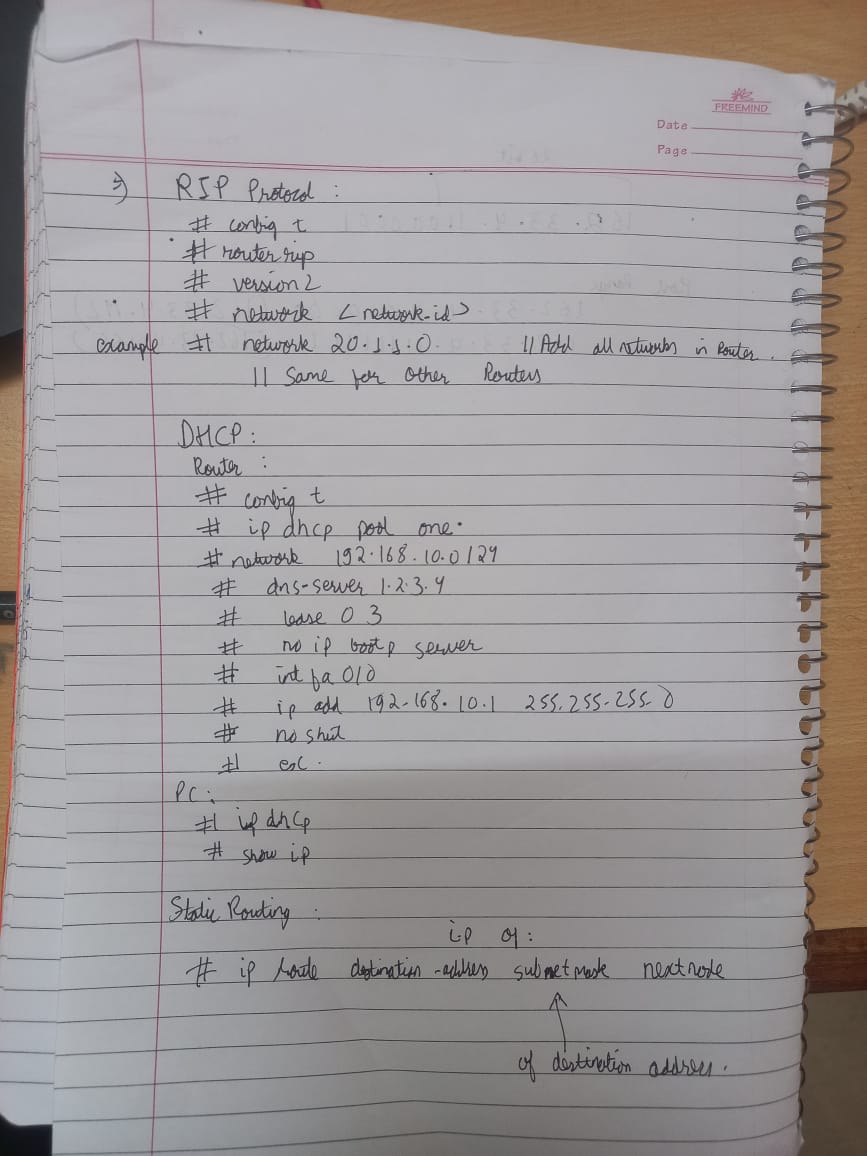 FREEMIND
Date
Page
RIP Protocol :
# config t
# router rip
# version 2
# network <network-id>
example # network 20.1.1.0 // Add all networks in Router.
// Same for Other Routers
DHCP:
Router :
# config t
# ip dhcp pool one.
# network 192.168.10.0/24
# dns-server 1.2.3.4
# lease 0 3
# no ip bootp server
# int fa 0/0
# ip add 192.168.10.1 255.255.255.0
# no shut
# esc.
PC:
# ip dhcp
# show ip
Static Routing :
ip of:
# ip route destination-address subnet mask next node
of destination address.